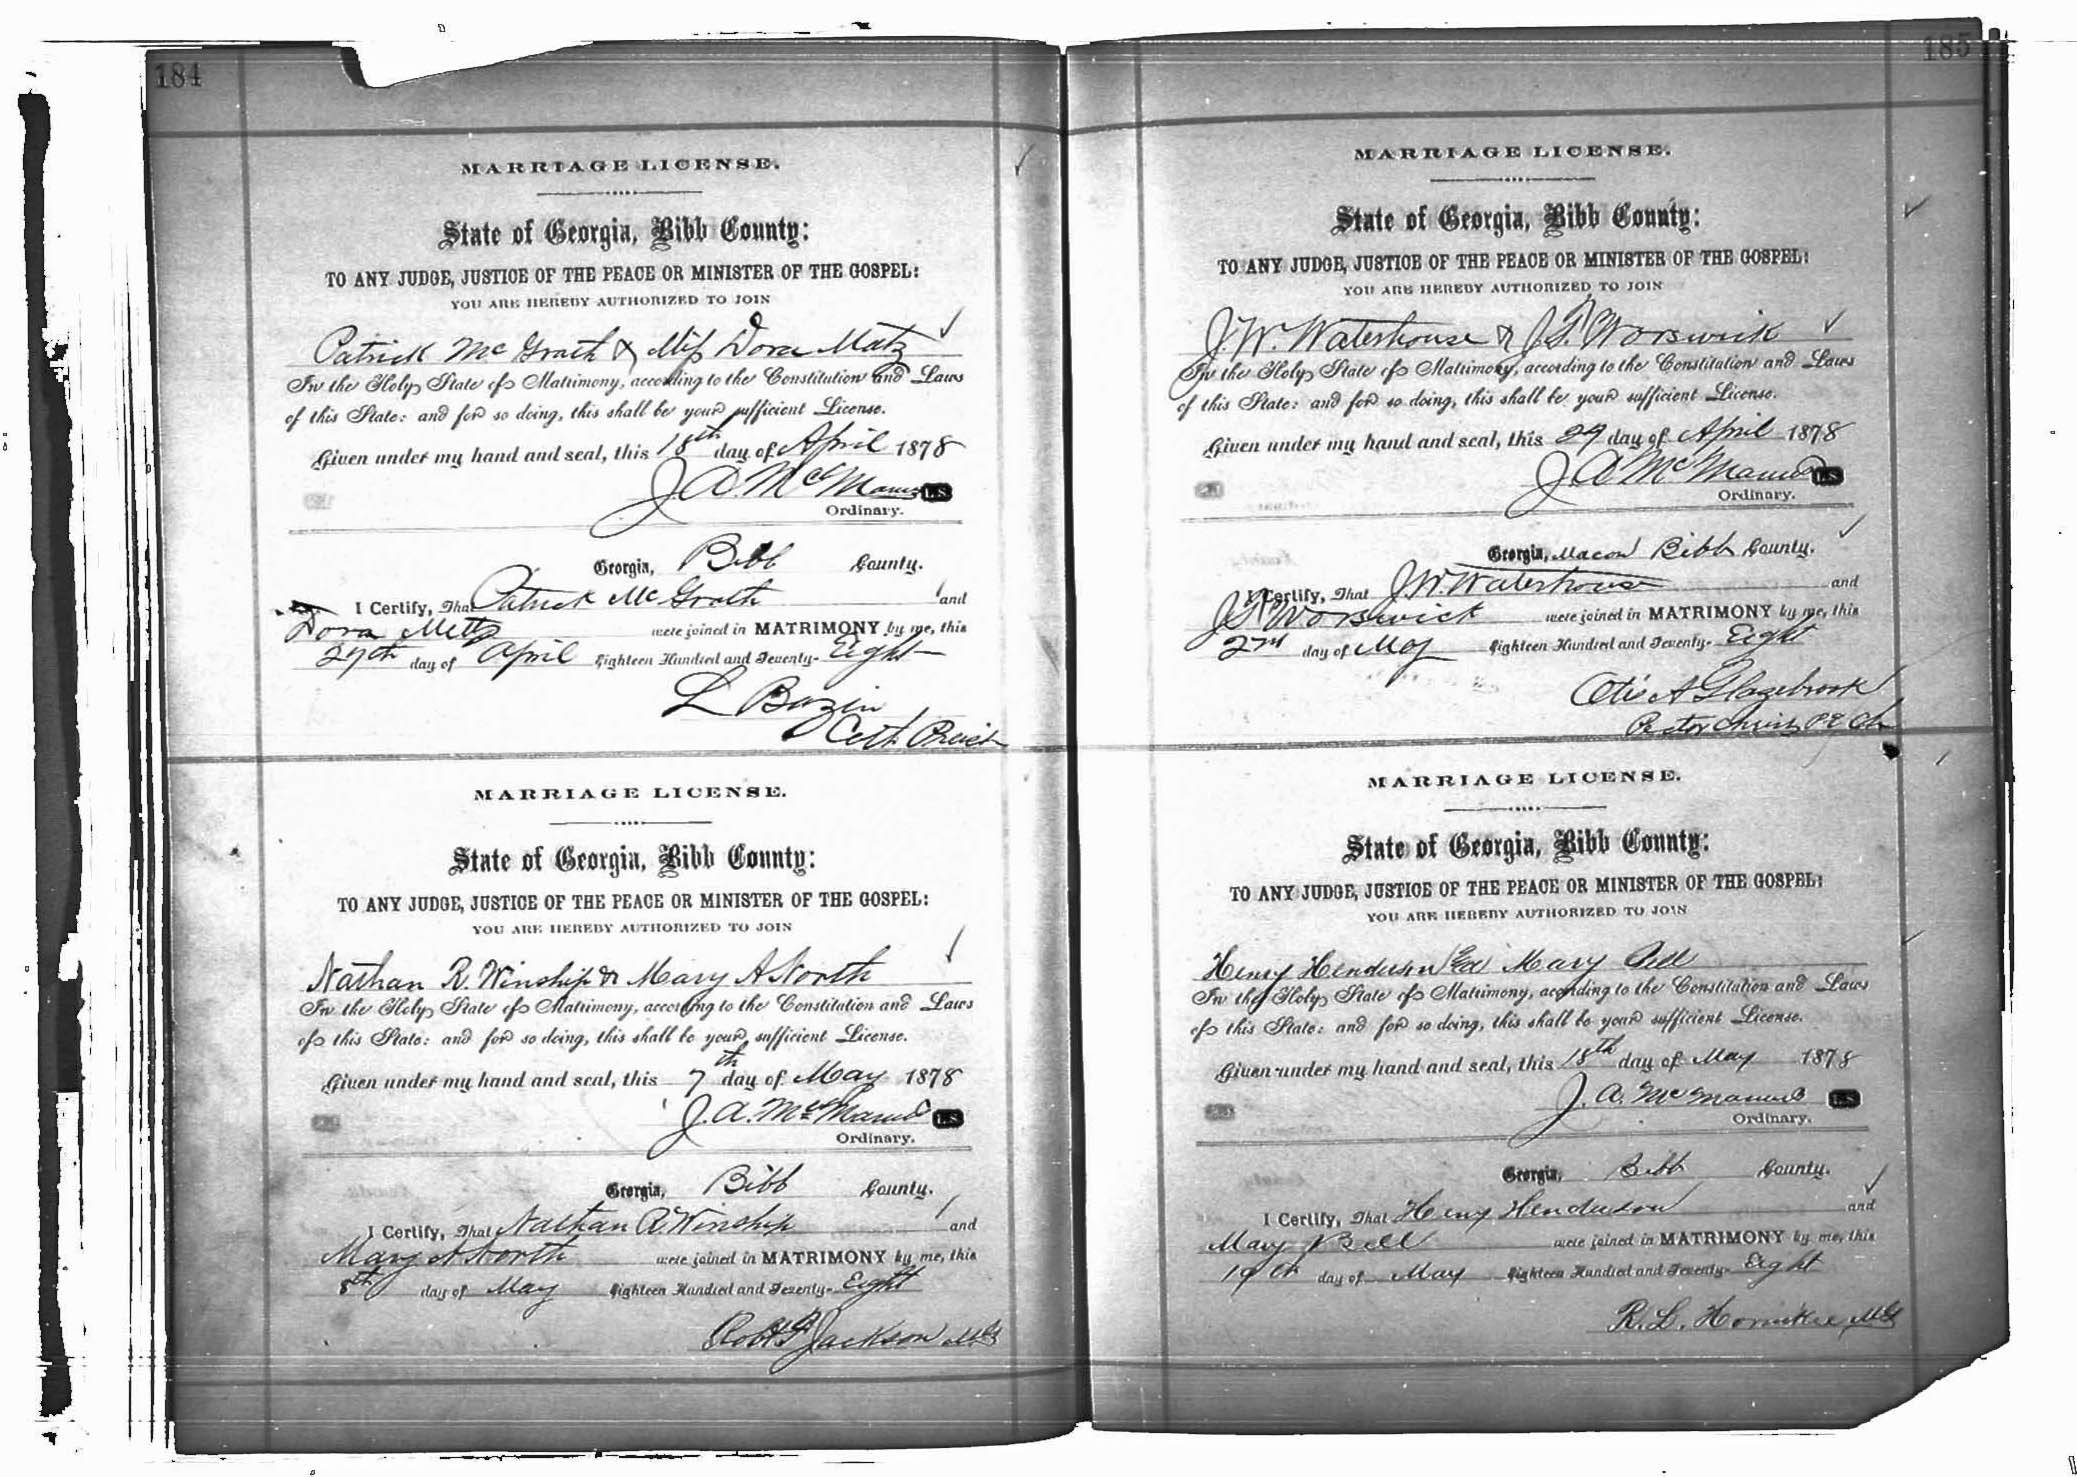 184
MARRIAGE LICENSE.
State of Georgia, Bibb County:
TO ANY JUDGE, JUSTICE OF THE PEACE OR MINISTER OF THE GOSPEL:
YOU ARE HEREBY AUTHORIZED TO JOIN
Patrick McGrath & Miss Dora Matz
In the Holy State of Matrimony, according to the Constitution and Laws
of this State: and for so doing, this shall be your sufficient License.
Given under my hand and seal, this 18th day of April 1878
J. A. McManus L.S.
Ordinary.
Georgia, Bibb County.
I Certify, That Patrick McGrath and
Dora Metz were joined in MATRIMONY by me, this
27th day of April Eighteen Hundred and Seventy- Eight
L Bazin
Cath Priest
MARRIAGE LICENSE.
State of Georgia, Bibb County:
TO ANY JUDGE, JUSTICE OF THE PEACE OR MINISTER OF THE GOSPEL:
YOU ARE HEREBY AUTHORIZED TO JOIN
Nathan R. Winship & Mary A North
In the Holy State of Matrimony, according to the Constitution and Laws
of this State: and for so doing, this shall be your sufficient License.
Given under my hand and seal, this 7th day of May 1878
J. A. McManus L.S.
Ordinary.
Georgia, Bibb County.
I Certify, That Nathan R Winship and
Mary A North were joined in MATRIMONY by me, this
8th day of May Eighteen Hundred and Seventy- Eight
Robt F Jackson MG
185
MARRIAGE LICENSE.
State of Georgia, Bibb County:
TO ANY JUDGE, JUSTICE OF THE PEACE OR MINISTER OF THE GOSPEL:
YOU ARE HEREBY AUTHORIZED TO JOIN
J. W. Waterhouse & Worswick
In the Holy State of Matrimony, according to the Constitution and Laws
of this State: and for so doing, this shall be your sufficient License.
Given under my hand and seal, this 29 day of April 1878
J A McManus L.S.
Ordinary.
Georgia, Macon Bibb County.
I Certify, That J. W. Waterhouse and
Worswick were joined in MATRIMONY by me, this
2nd day of May Eighteen Hundred and Seventy- Eight
Otis A Glazebrook
Rector Christ P E Ch
MARRIAGE LICENSE.
State of Georgia, Bibb County:
TO ANY JUDGE, JUSTICE OF THE PEACE OR MINISTER OF THE GOSPEL:
YOU ARE HEREBY AUTHORIZED TO JOIN
Henry Henderson Mary Bell
In the Holy State of Matrimony, according to the Constitution and Laws
of this State: and for so doing, this shall be your sufficient License.
Given under my hand and seal, this 18th day of May 1878
J. A. McManus L.S.
Ordinary.
Georgia, Bibb County.
I Certify, That Henry Henderson and
Mary Bell were joined in MATRIMONY by me, this
19th day of May Eighteen Hundred and Seventy- Eight
R. L. MG